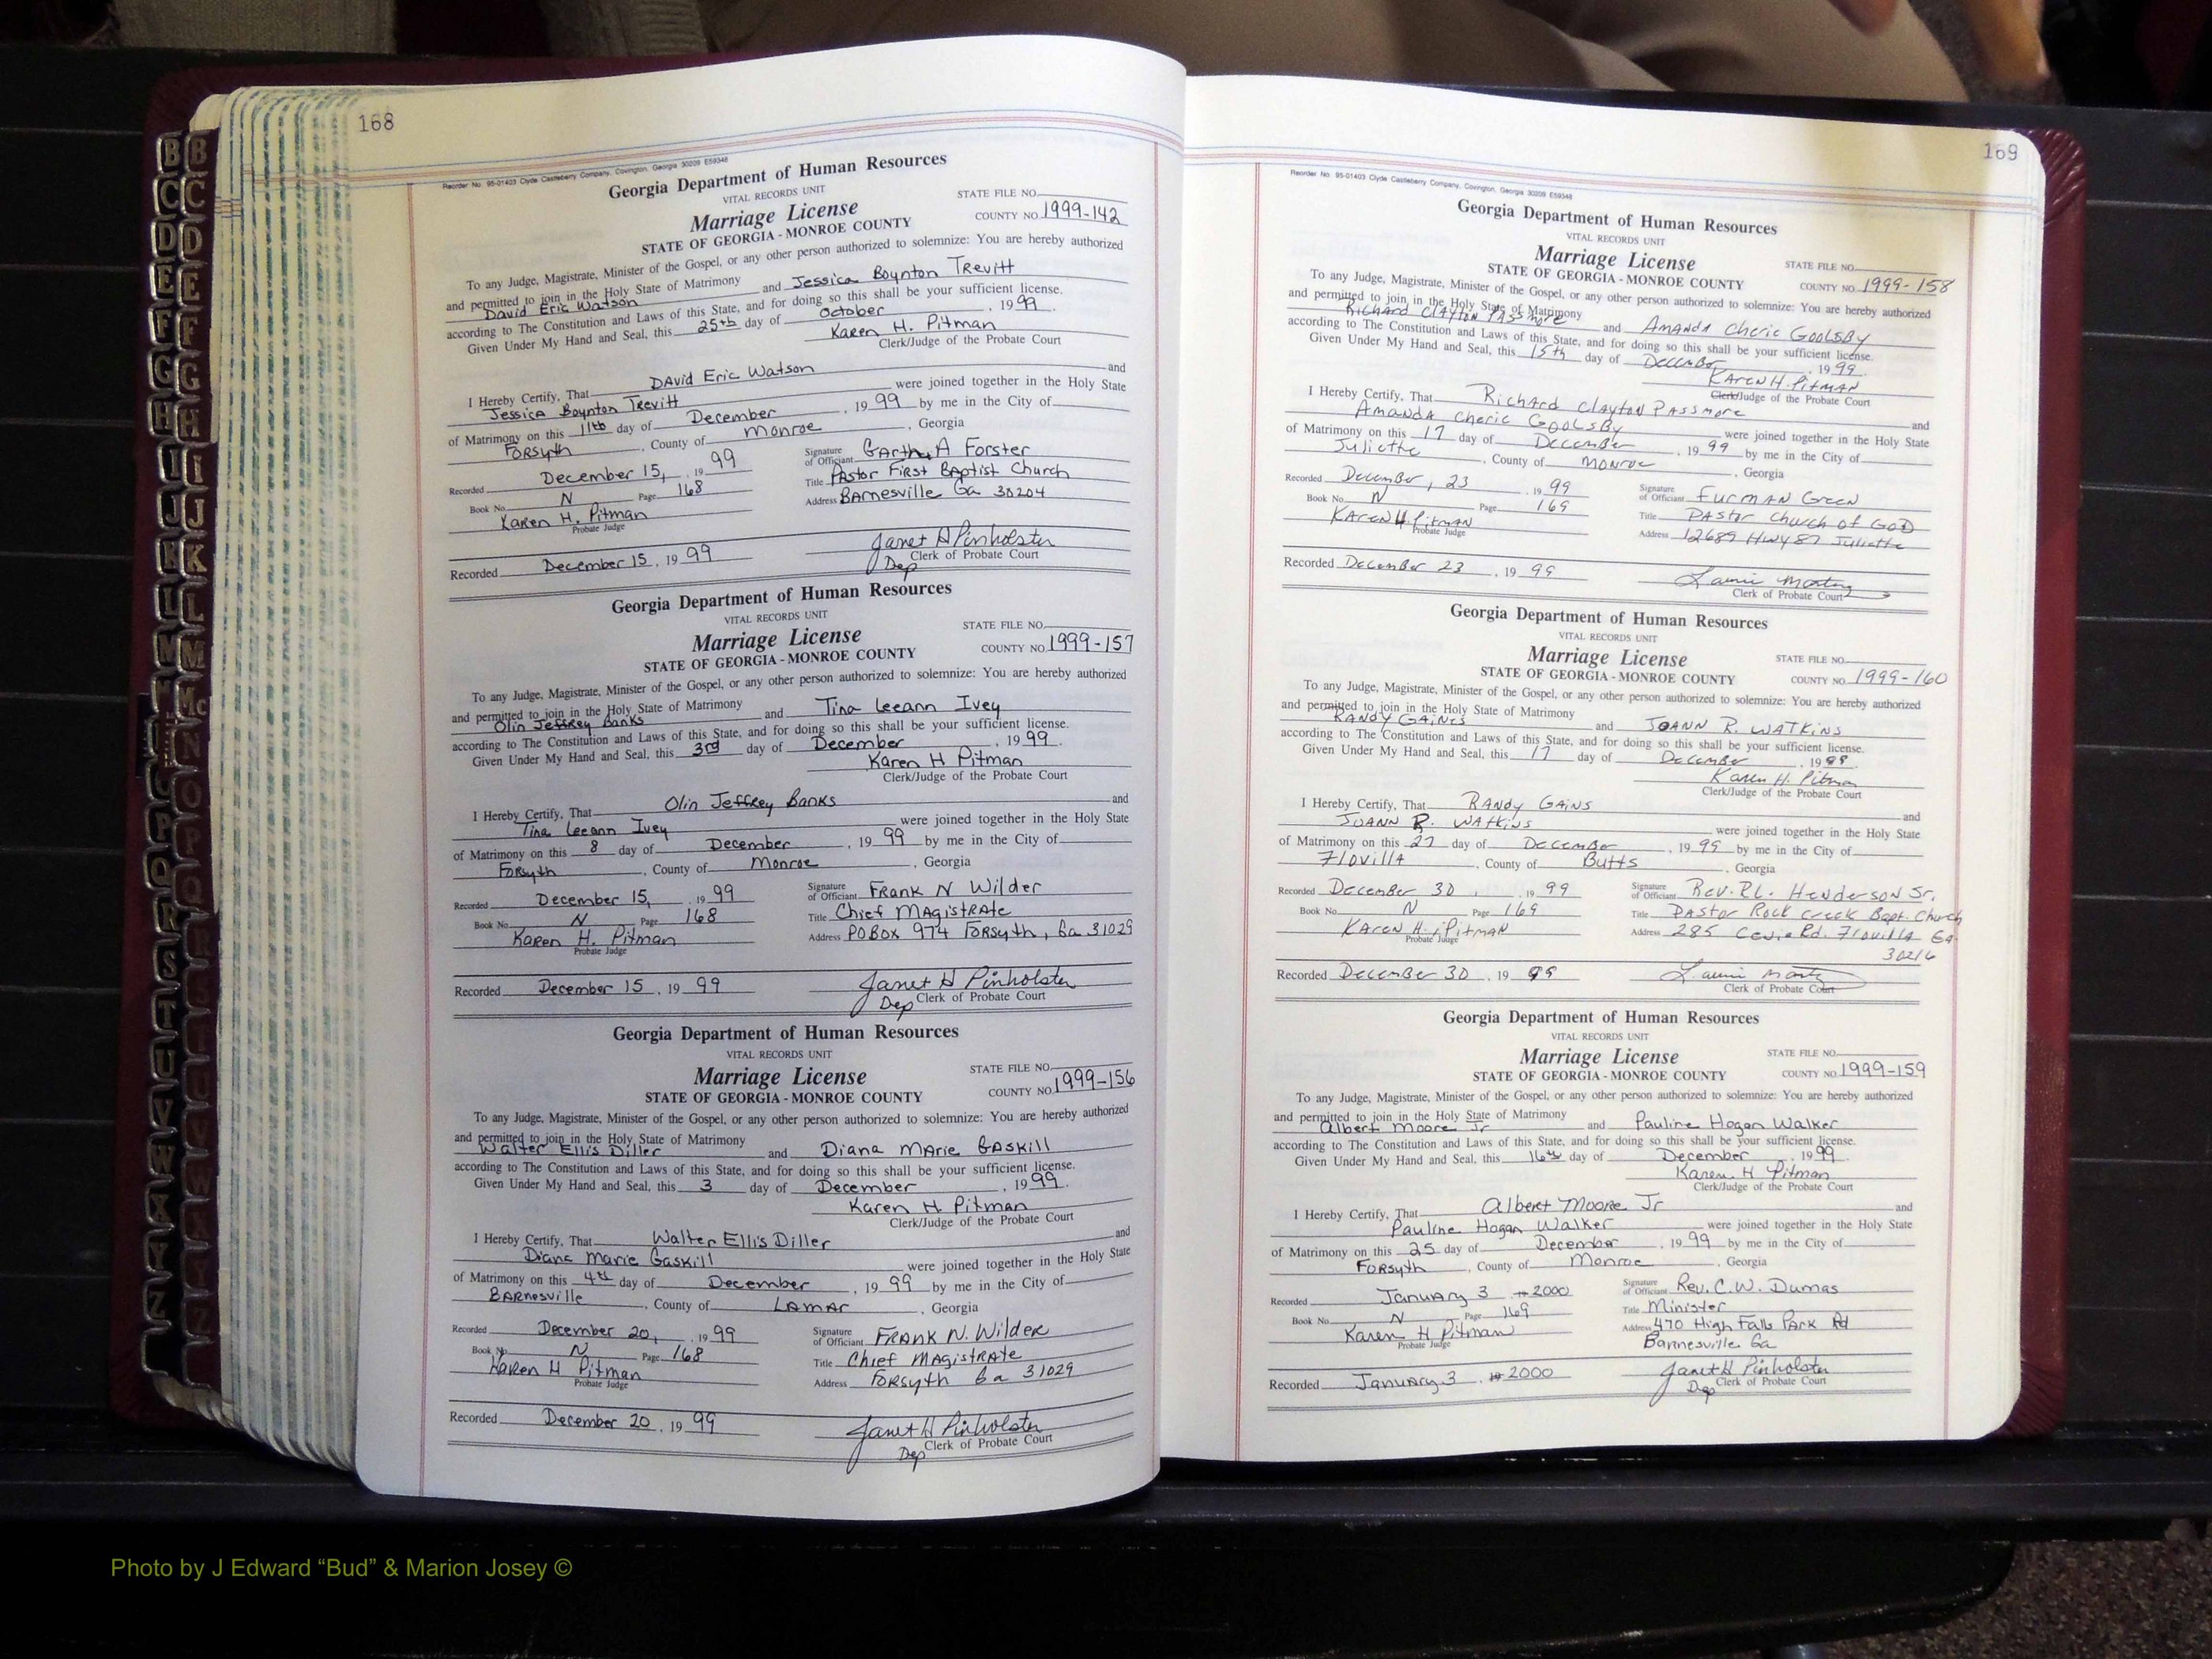 168
Reorder No. 95-01403 Clyde Castleberry Company, Covington, Georgia 30209 E59348
Georgia Department of Human Resources
VITAL RECORDS UNIT
STATE FILE NO.
Marriage License
COUNTY NO. 1999-142
STATE OF GEORGIA - MONROE COUNTY
To any Judge, Magistrate, Minister of the Gospel, or any other person authorized to solemnize: You are hereby authorized
and permitted to join in the Holy State of Matrimony
David Eric Watson and Jessica Boynton Trevitt
according to The Constitution and Laws of this State, and for doing so this shall be your sufficient license.
Given Under My Hand and Seal, this 25th day of October, 1999.
Karen H. Pitman
Clerk/Judge of the Probate Court
I Hereby Certify, That David Eric Watson and
Jessica Boynton Trevitt were joined together in the Holy State
of Matrimony on this 11th day of December, 1999 by me in the City of
Forsyth, County of Monroe, Georgia
Recorded December 15, 1999
Signature of Officiant Garthy A Forster
Book No. N Page 168
Title Pastor First Baptist Church
Karen H. Pitman
Address Barnesville Ga 30204
Probate Judge
Recorded December 15, 1999
Janet H Pinholster
Dep Clerk of Probate Court
Georgia Department of Human Resources
VITAL RECORDS UNIT
STATE FILE NO.
Marriage License
COUNTY NO. 1999-157
STATE OF GEORGIA - MONROE COUNTY
To any Judge, Magistrate, Minister of the Gospel, or any other person authorized to solemnize: You are hereby authorized
and permitted to join in the Holy State of Matrimony
Olin Jeffrey Banks and Tina Leeann Ivey
according to The Constitution and Laws of this State, and for doing so this shall be your sufficient license.
Given Under My Hand and Seal, this 3rd day of December, 1999.
Karen H Pitman
Clerk/Judge of the Probate Court
I Hereby Certify, That Olin Jeffrey Banks and
Tina Leeann Ivey were joined together in the Holy State
of Matrimony on this 8 day of December, 1999 by me in the City of
Forsyth, County of Monroe, Georgia
Recorded December 15, 1999
Signature of Officiant Frank N Wilder
Book No. N Page 168
Title Chief Magistrate
Karen H. Pitman
Address PO Box 974 Forsyth, Ga 31029
Probate Judge
Recorded December 15, 1999
Janet H Pinholster
Dep Clerk of Probate Court
Georgia Department of Human Resources
VITAL RECORDS UNIT
STATE FILE NO.
Marriage License
COUNTY NO. 1999-156
STATE OF GEORGIA - MONROE COUNTY
To any Judge, Magistrate, Minister of the Gospel, or any other person authorized to solemnize: You are hereby authorized
and permitted to join in the Holy State of Matrimony
Walter Ellis Diller and Diana Marie Gaskill
according to The Constitution and Laws of this State, and for doing so this shall be your sufficient license.
Given Under My Hand and Seal, this 3 day of December, 1999.
Karen H Pitman
Clerk/Judge of the Probate Court
I Hereby Certify, That Walter Ellis Diller and
Diana Marie Gaskill were joined together in the Holy State
of Matrimony on this 4th day of December, 1999 by me in the City of
Barnesville, County of Lamar, Georgia
Recorded December 20, 1999
Signature of Officiant Frank N. Wilder
Book No. N Page 168
Title Chief Magistrate
Karen H Pitman
Address Forsyth Ga 31029
Probate Judge
Recorded December 20, 1999
Janet H Pinholster
Dep Clerk of Probate Court
169
Reorder No. 95-01403 Clyde Castleberry Company, Covington, Georgia 30209 E59348
Georgia Department of Human Resources
VITAL RECORDS UNIT
Marriage License
STATE FILE NO.
STATE OF GEORGIA - MONROE COUNTY
COUNTY NO. 1999-158
To any Judge, Magistrate, Minister of the Gospel, or any other person authorized to solemnize: You are hereby authorized
and permitted to join in the Holy State of Matrimony
Richard Clayton Passmore and Amanda Cheric Goolsby
according to The Constitution and Laws of this State, and for doing so this shall be your sufficient license.
Given Under My Hand and Seal, this 15th day of December, 1999.
Karen H. Pitman
Clerk/Judge of the Probate Court
I Hereby Certify, That Richard Clayton Passmore and
Amanda Cheric Goolsby were joined together in the Holy State
of Matrimony on this 17 day of December, 1999 by me in the City of
Juliette, County of Monroe, Georgia
Recorded December, 23 1999
Signature of Officiant Furman Green
Book No. N Page 169
Title Pastor Church of God
Karen H. Pitman
Address 12689 Hwy 87 Juliette
Probate Judge
Recorded December 23, 1999
Clerk of Probate Court
Georgia Department of Human Resources
VITAL RECORDS UNIT
Marriage License
STATE FILE NO.
STATE OF GEORGIA - MONROE COUNTY
COUNTY NO. 1999-160
To any Judge, Magistrate, Minister of the Gospel, or any other person authorized to solemnize: You are hereby authorized
and permitted to join in the Holy State of Matrimony
Randy Gaines and Joann R. Watkins
according to The Constitution and Laws of this State, and for doing so this shall be your sufficient license.
Given Under My Hand and Seal, this 17 day of December, 1999.
Karen H. Pitman
Clerk/Judge of the Probate Court
I Hereby Certify, That Randy Gains and
Joann R. Watkins were joined together in the Holy State
of Matrimony on this 27 day of December, 1999 by me in the City of
Flovilla, County of Butts, Georgia
Recorded December 30, 1999
Signature of Officiant Rev. R.L. Henderson Sr.
Book No. N Page 169
Title Pastor Rock Creek Bapt. Church
Karen H. Pitman
Address 285 Rd. Flovilla Ga
Probate Judge
30216
Recorded December 30, 1999
Clerk of Probate Court
Georgia Department of Human Resources
VITAL RECORDS UNIT
Marriage License
STATE FILE NO.
STATE OF GEORGIA - MONROE COUNTY
COUNTY NO. 1999-159
To any Judge, Magistrate, Minister of the Gospel, or any other person authorized to solemnize: You are hereby authorized
and permitted to join in the Holy State of Matrimony
Albert Moore Jr and Pauline Hogan Walker
according to The Constitution and Laws of this State, and for doing so this shall be your sufficient license.
Given Under My Hand and Seal, this 16th day of December, 1999.
Karen H Pitman
Clerk/Judge of the Probate Court
I Hereby Certify, That Albert Moore Jr and
Pauline Hogan Walker were joined together in the Holy State
of Matrimony on this 25 day of December, 1999 by me in the City of
Forsyth, County of Monroe, Georgia
Recorded January 3 2000
Signature of Officiant Rev. C.W. Dumas
Book No. N Page 169
Title Minister
Karen H Pitman
Address 470 High Falls Park Rd
Probate Judge
Barnesville Ga
Recorded January 3, 2000
Janet H Pinholster
Dep Clerk of Probate Court
B B
C C
D D
E E
F F
G G
H H
I I
J J
K K
L L
M M
Mc
N
O
P P
Q Q
R R
S
T
U U
V V
W W
X X
Y Y
Z Z
Photo by J Edward “Bud” & Marion Josey ©